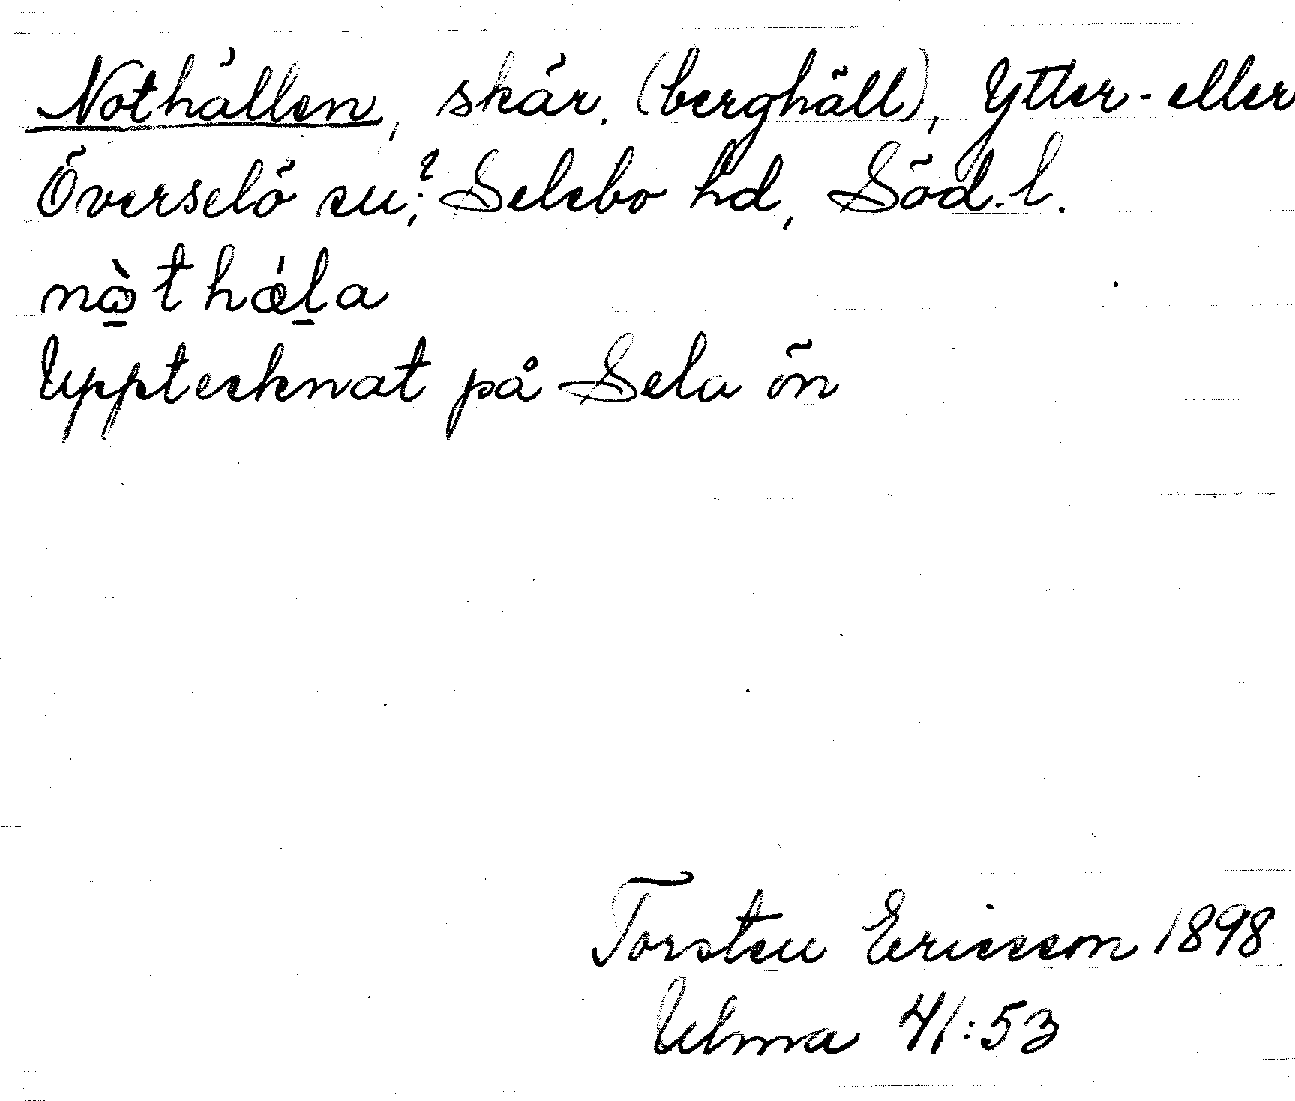 Nothällen, skär. (berghäll), Ytter- eller
Överselö sn;? Selebo hd, Söd. l.
nò̱thǽḻa
Upptecknat på Sela ön
Torsten Ericsson 1898
Ulma 41:53